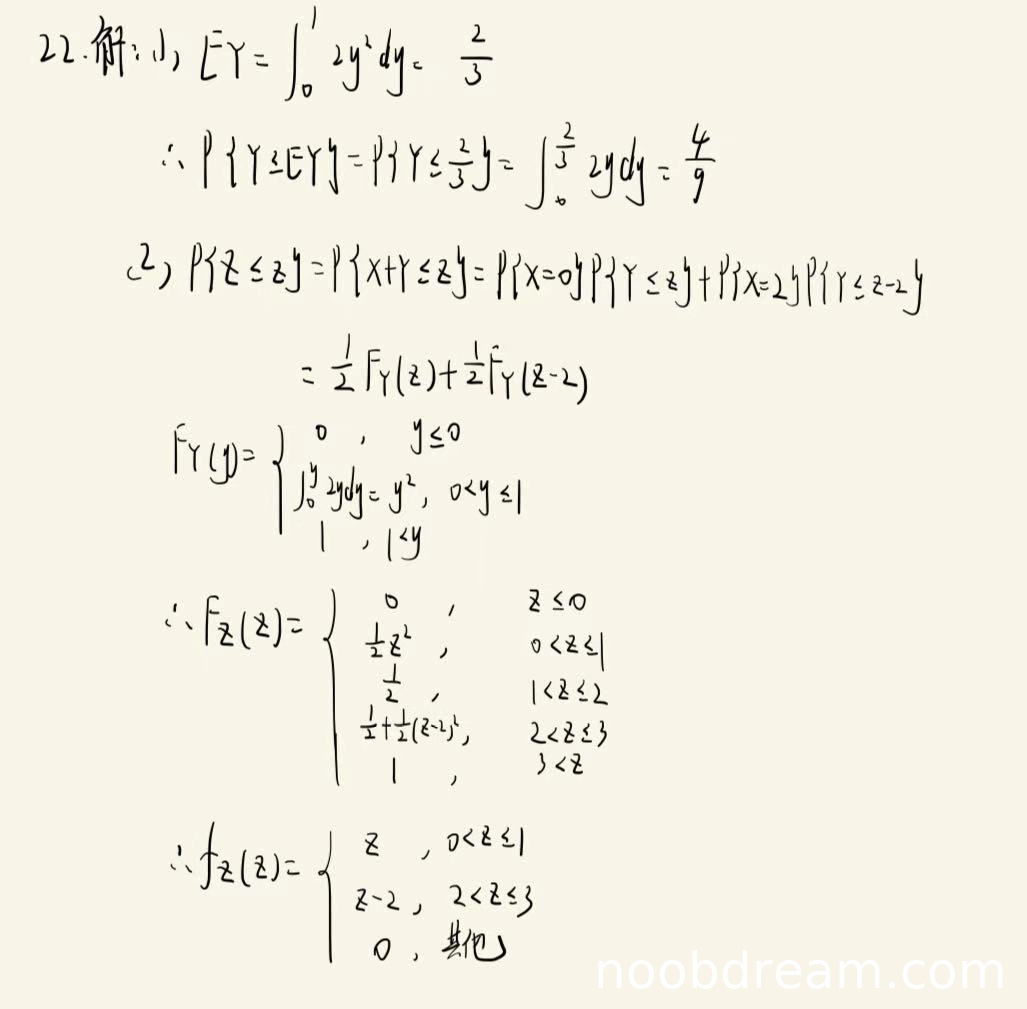 22.解:(1) EY=∫₀¹ 2y²dy= 2/3
∴P{Y≤EY}=P{Y≤2/3}=∫₀^(2/3) 2ydy=4/9
(2) P{Z≤z}=P{X+Y≤z}=P{X=0}P{Y≤z}+P{X=2}P{Y≤z-2}
=1/2 F_Y(z)+1/2 F_Y(z-2)
F_Y(y)= { 0 , y≤0
∫₀^y 2ydy=y², 0<y≤1
1 , 1<y
∴F_Z(z)= { 0 , z≤0
1/2 z² , 0<z≤1
1/2 , 1<z≤2
1/2+1/2(z-2)², 2<z≤3
1 , 3<z
∴f_Z(z)= { z , 0<z≤1
z-2, 2<z≤3
0 , 其他
noobdream.com